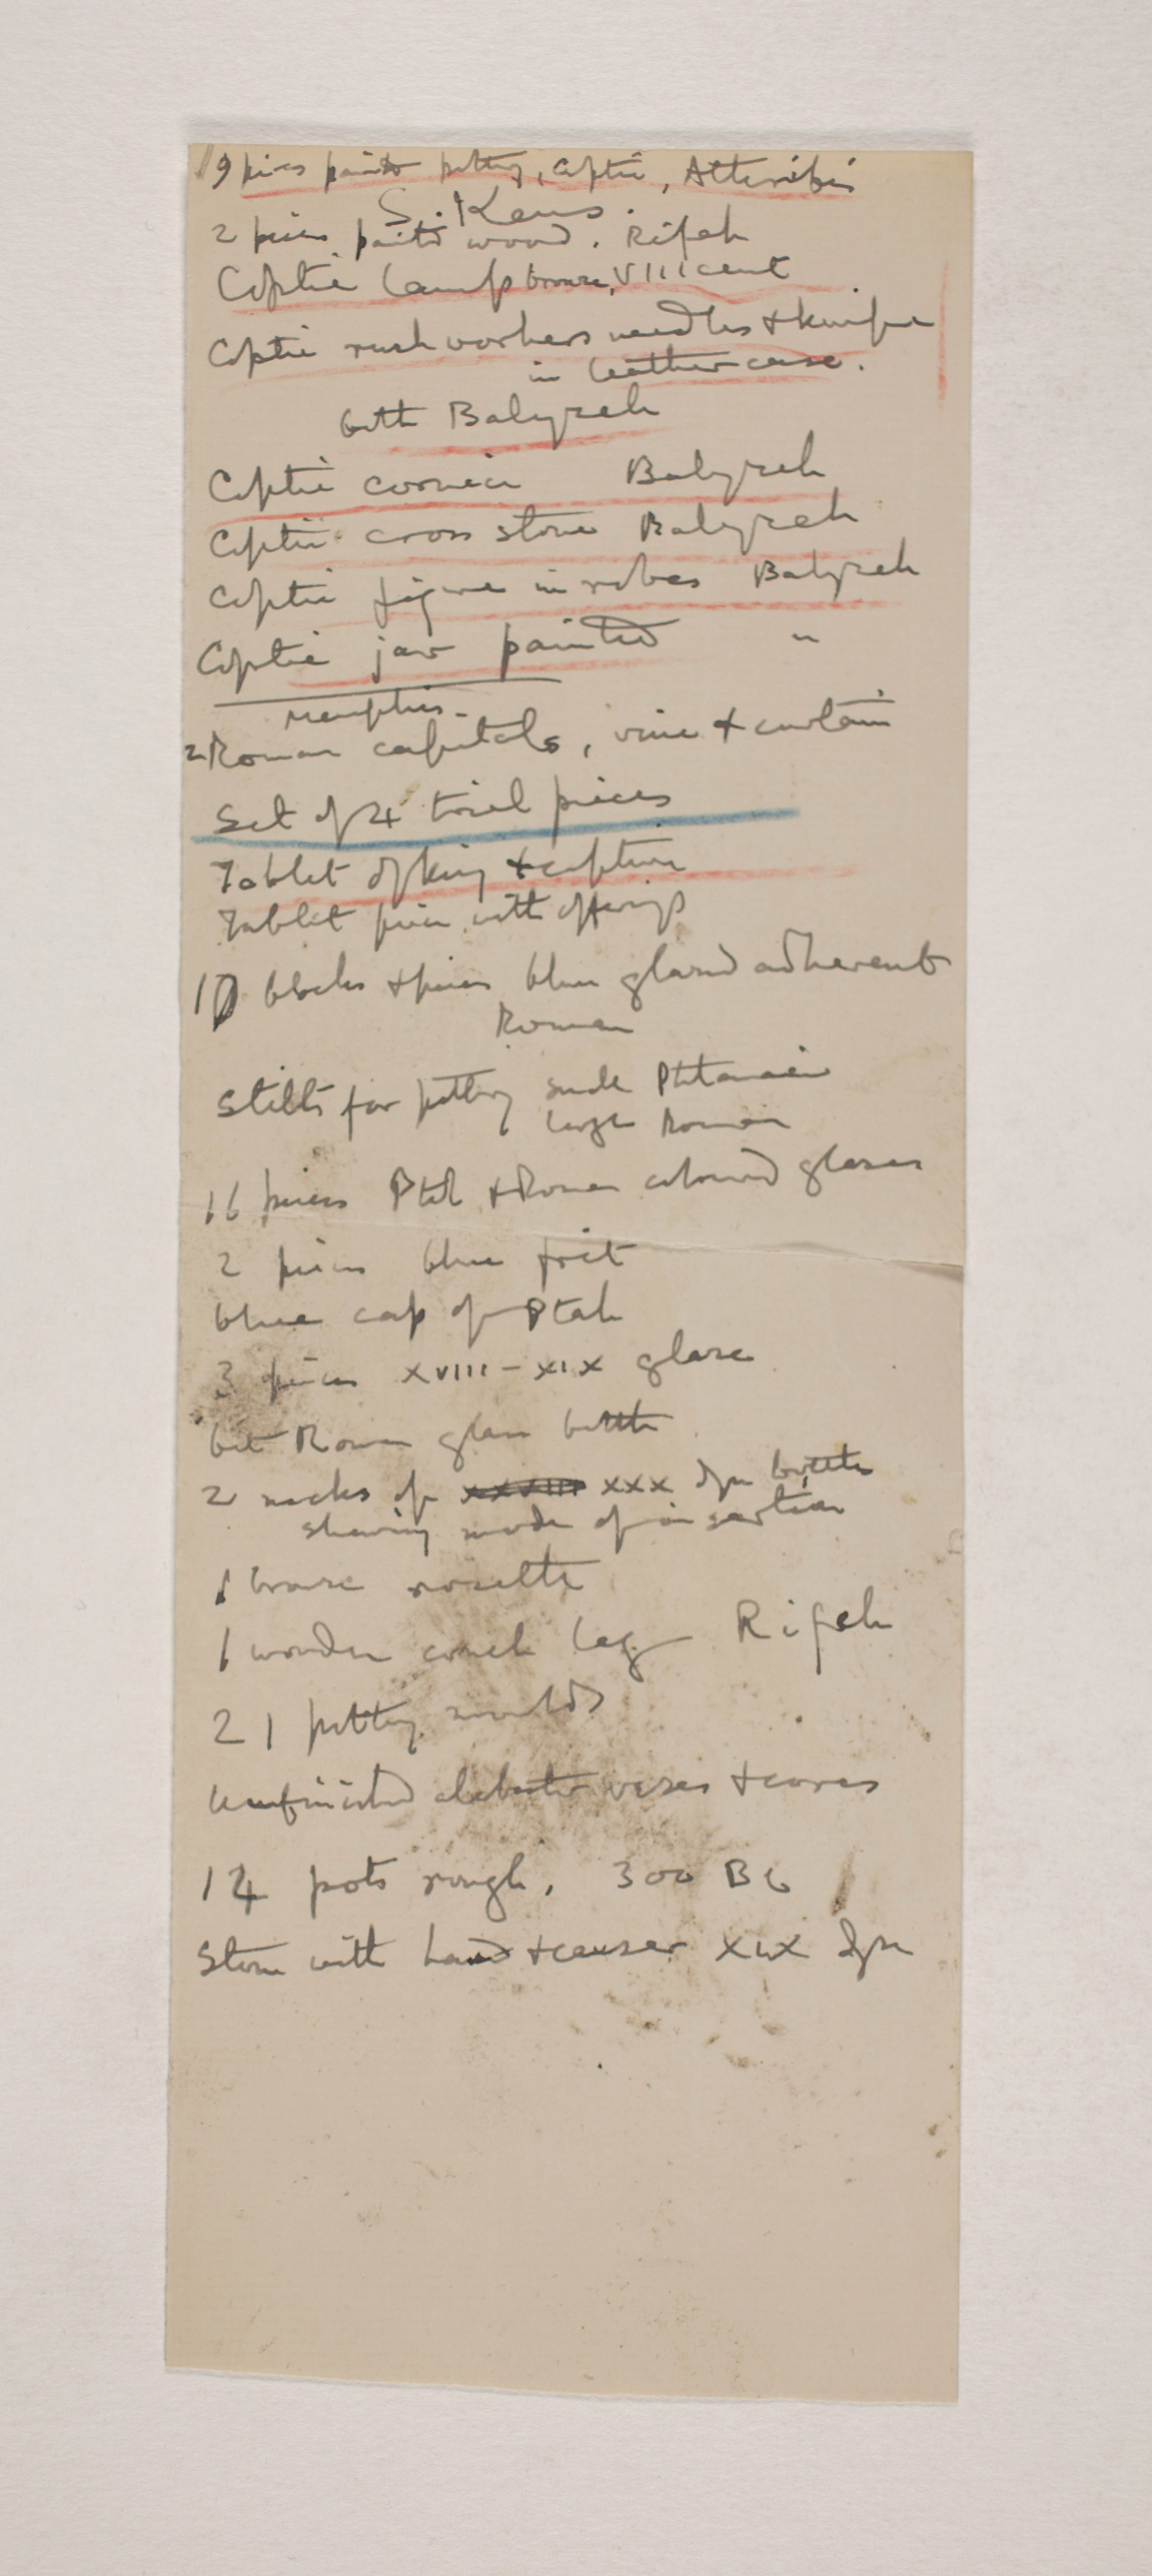 9 pieces painted pottery, Coptic, Atteribis
S. Kens.
2 pieces painted wood. Rifeh
Coptic lamp bronze, VIII cent
Coptic rush workers needles & knife
in leather case.
both Balyzeh
Coptic cornice Balyzeh
Coptic cross stone Balyzeh
Coptic figure in robes Balyzeh
Coptic jar painted "
Memphis.
2 Roman capitals, vine & curtain
Set of 4 trial pieces
Tablet of king & captive
Tablet piece with offerings
10 blocks & pieces blue glazed adherent
Roman
Stilts for pottery small Ptolemaic
large Roman
16 pieces Ptol & Roman coloured glazes
2 pieces blue frit
blue cap of Ptah
3 pieces XVIII - XIX glaze
bit Roman glass bottle
2 necks of XXVIII XXX dyn bottles
showing mode of insertion
1 bronze rosette
1 wooden couch leg Rifeh
21 pottery moulds
Unfinished alabaster vases & cores
14 pots rough, 300 BC
Stone with hand & censer XIX dyn